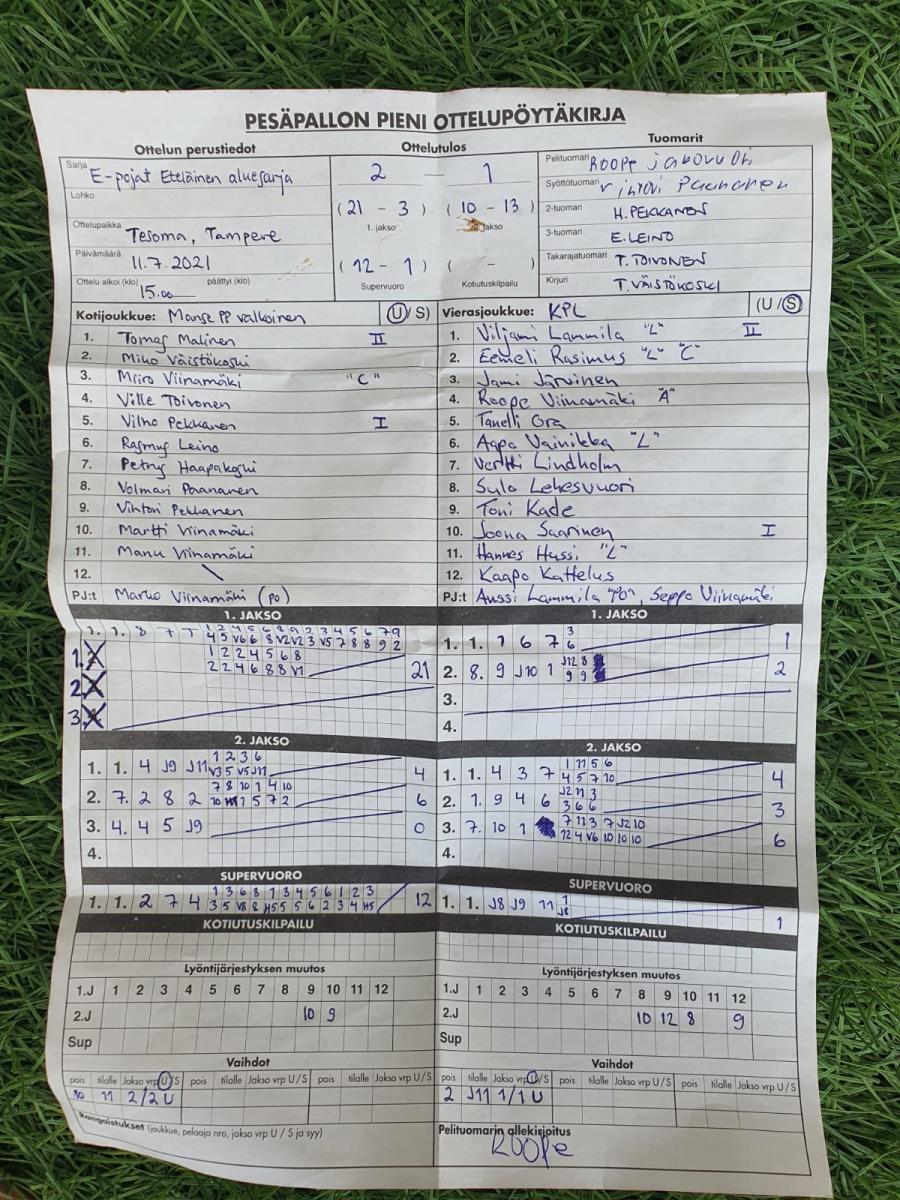 PESÄPALLON PIENI OTTELUPÖYTÄKIRJA
Ottelun perustiedot
Ottelutulos
Tuomarit
Sarja E-pojat Eteläinen aluesarja
Lohko
Ottelupaikka Tesoma, Tampere
Päivämäärä 11.7.2021
Ottelu alkoi (klo) päättyi (klo)
15.00
2 — 1
(21 - 3) (10 - 13)
1. jakso 2. jakso
(12 - 1) ( - )
Supervuoro Kotiutuskilpailu
Pelituomari Roope
Syöttötuomari Paananen
2-tuomari H. PEKKANEN
3-tuomari E. LEINO
Takarajatuomari T. TOIVONEN
Kirjuri T. VÄISTÖKOSKI
Kotijoukkue: Manse PP valkoinen (U/S)
1. Tomas Malinen II
2. Miko Väistökoski
3. Miiro Viinamäki "C"
4. Ville Toivonen
5. Vilho Pekkanen I
6. Rasmus Leino
7. Petrus Haapakoski
8. Volmari Paananen
9. Vihtori Pekkanen
10. Martti Viinamäki
11. Manu Viinamäki
12.
PJ:t Marko Viinamäki (PO)
Vierasjoukkue: KPL (U/S)
1. Viljami Lammila "L" II
2. Eemeli Rasimus "L" "C"
3. Jami Järvinen
4. Roope Viinamäki "A"
5. Tanelli Ora
6. Aapo Vainikka "L"
7. Vertti Lindholm
8. Sulo Lehesvuori
9. Toni Kade
10. Joona Saarinen I
11. Hannes Hussi "L"
12. Kaapo Kattelus
PJ:t Anssi Lammila "PO", Seppo Viinamäki
1. JAKSO
1. 1. 8 7 1 1 2 4 5 6 8 9 2 3 4 5 6 7 9
4 5 V6 6 8 V2 V2 3 V5 7 8 8 9 2
1. 1 2 2 4 5 6 8
2 2 4 6 8 8 V1 21
2.
3.
1. JAKSO
1. 1. 1 6 7 3 1
6
2. 8. 9 J10 1 J12 8 2
9 9
3.
4.
2. JAKSO
1. 1. 4 J9 J11 1 2 3 6 4
V3 5 V5 J11
2. 7. 2 8 2 7 8 10 1 4 10 6
10 1 5 7 2
3. 4. 4 5 J9 0
4.
2. JAKSO
1. 1. 4 3 7 1 11 5 6 4
4 5 7 10
2. 1. 9 4 6 J2 11 3 3
3 6 6
3. 7. 10 1 7 11 3 7 J2 10 6
12 4 V6 10 10 10
4.
SUPERVUORO
1. 1. 2 7 4 1 3 6 8 1 3 4 5 6 1 2 3 12
3 5 V8 8 H5 5 5 6 2 3 4 H5
SUPERVUORO
1. 1. J8 J9 11 1 1
J8
KOTIUTUSKILPAILU
KOTIUTUSKILPAILU
Lyöntijärjestyksen muutos
1.J 1 2 3 4 5 6 7 8 9 10 11 12
2.J 10 9
Sup
Lyöntijärjestyksen muutos
1.J 1 2 3 4 5 6 7 8 9 10 11 12
2.J 10 12 8 9
Sup
Vaihdot
pois tilalle Jakso vrp U/S pois tilalle Jakso vrp U/S pois tilalle Jakso vrp U/S
10 11 2/2 U
Rangaistukset (joukkue, pelaaja nro, jakso vrp U / S ja syy)
Vaihdot
pois tilalle Jakso vrp U/S pois tilalle Jakso vrp U/S pois tilalle Jakso vrp U/S
2 J11 1/1 U
Pelituomarin allekirjoitus
Roope